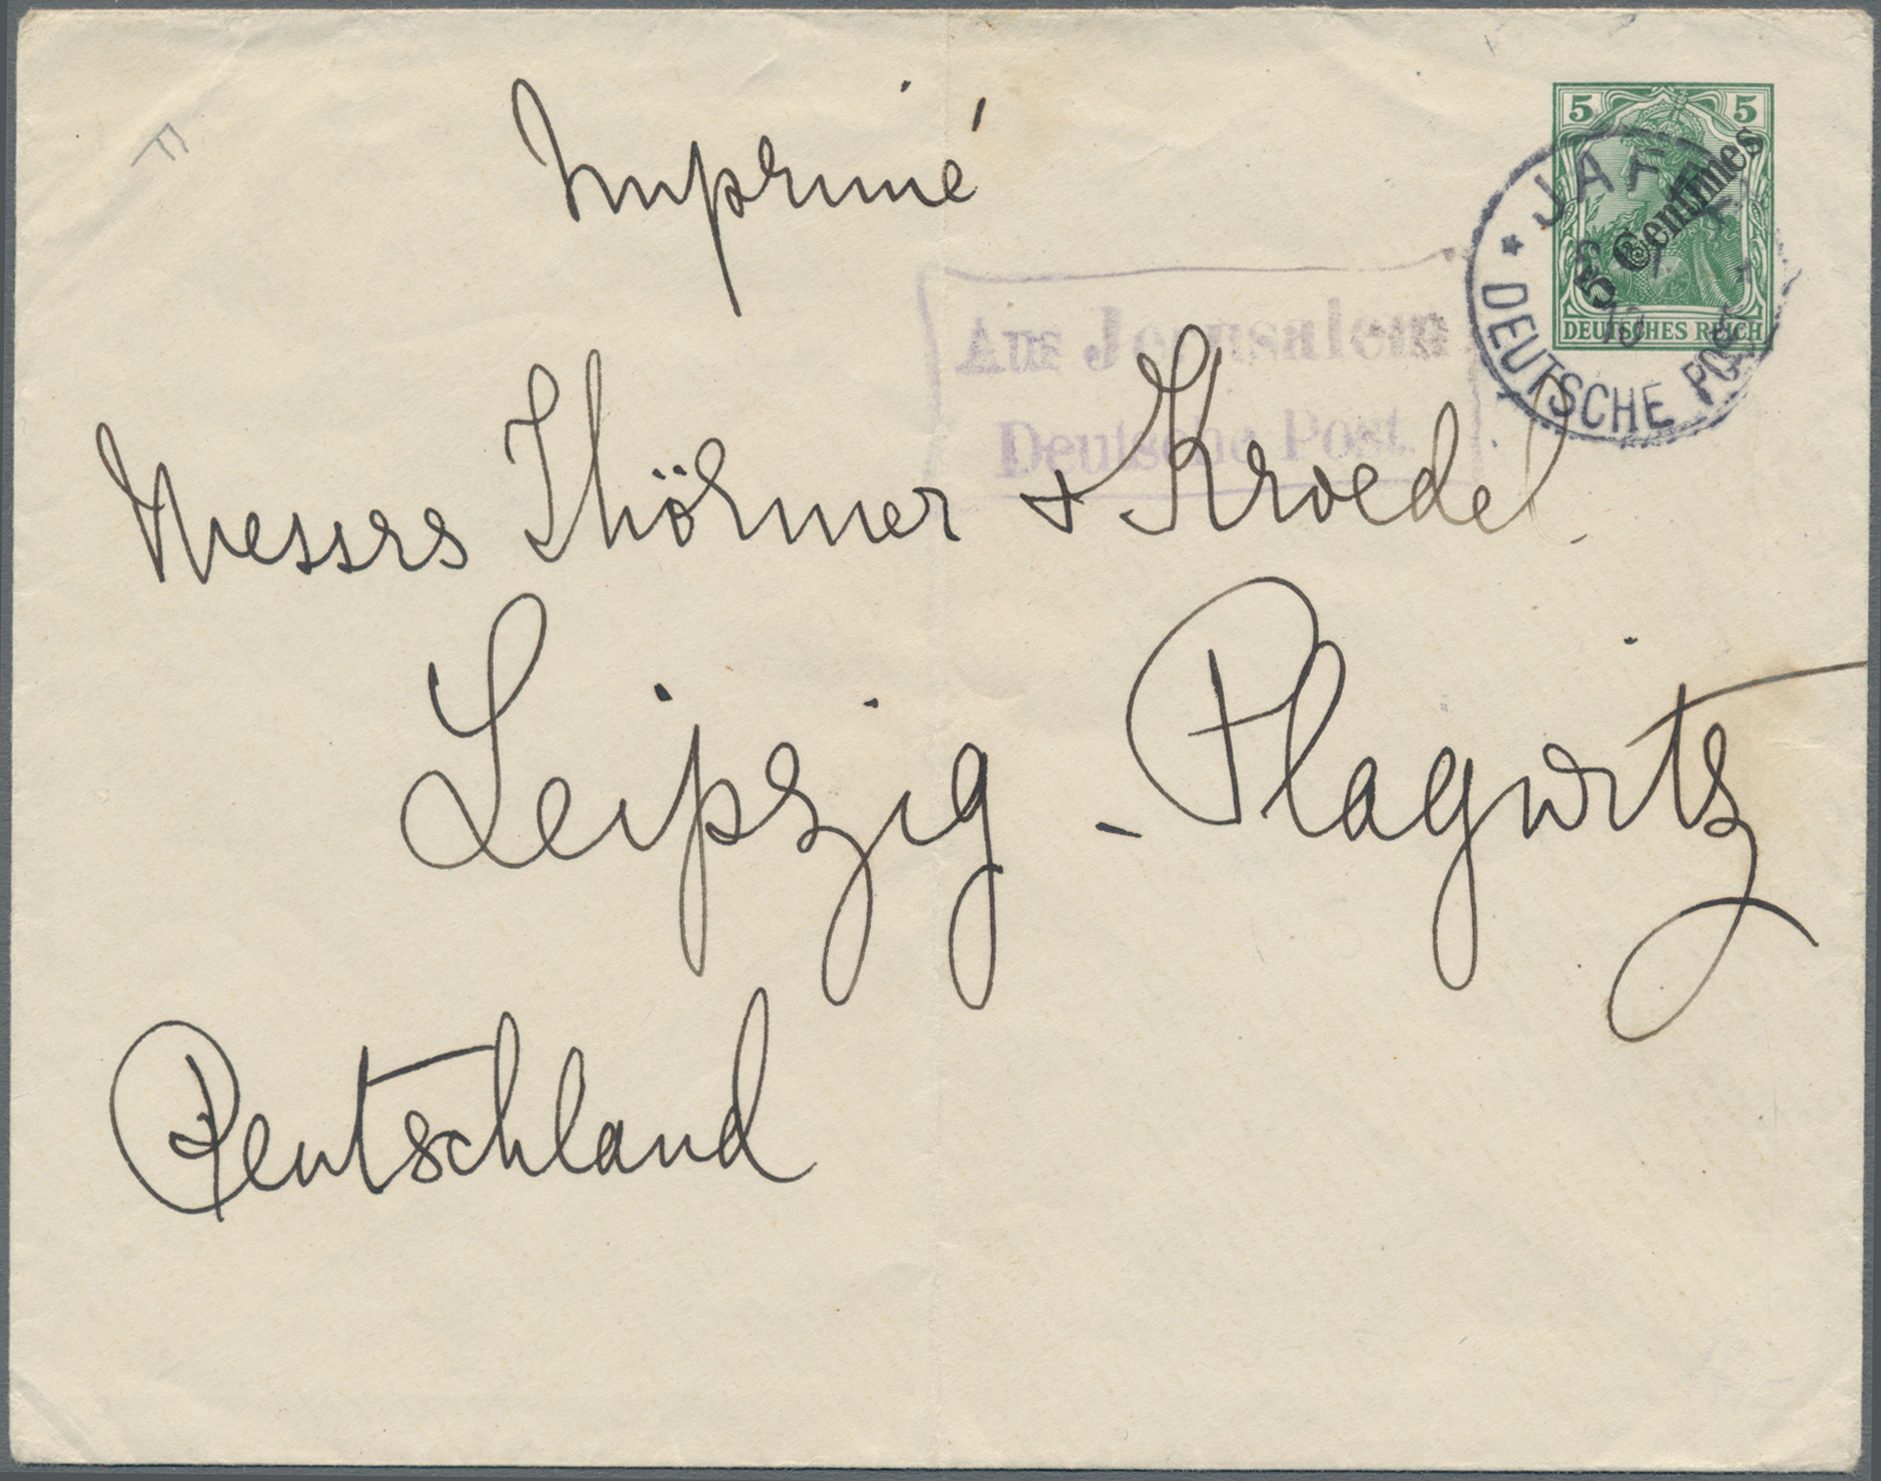 F
Imprimé
5 5
5 Centimes
DEUTSCHES REICH
* JAFFA *
DEUTSCHE POST
Aus Jerusalem
Deutsche Post.
Messrs Thörmer + Kroedel.
Leipzig - Plagwitz
Deutschland